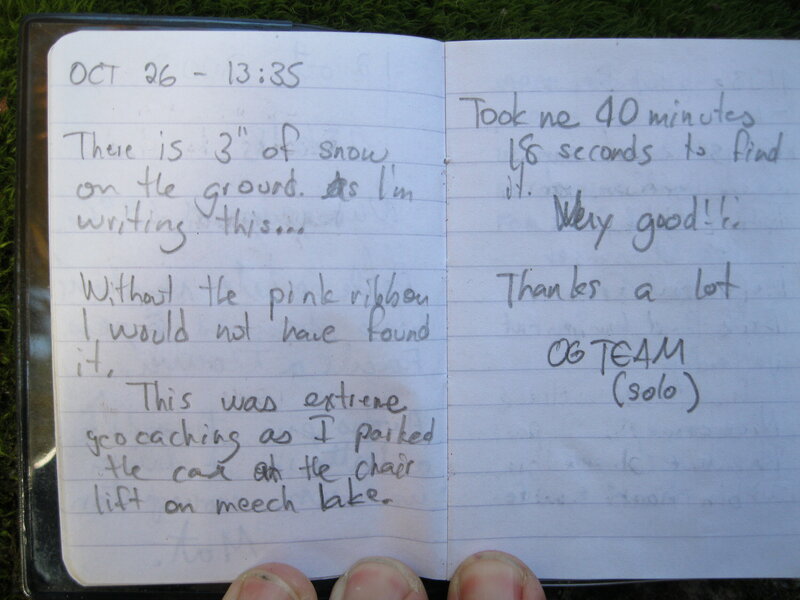 OCT 26 - 13:35
There is 3" of snow
on the ground. As I'm
writing this...
Without the pink ribbon
I would not have found
it.
This was extreme
geocaching as I parked
the car at the chair
lift on meech lake.
Took me 40 minutes
18 seconds to find
it.
Very good!!!
Thanks a lot
OG TEAM
(solo)